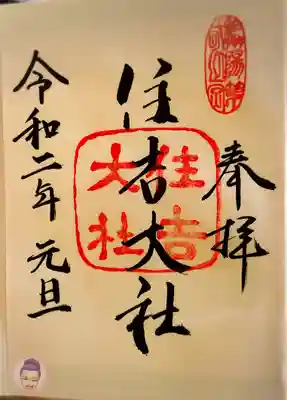 奉拝
住吉大社
住吉
大社
令和二年 元旦